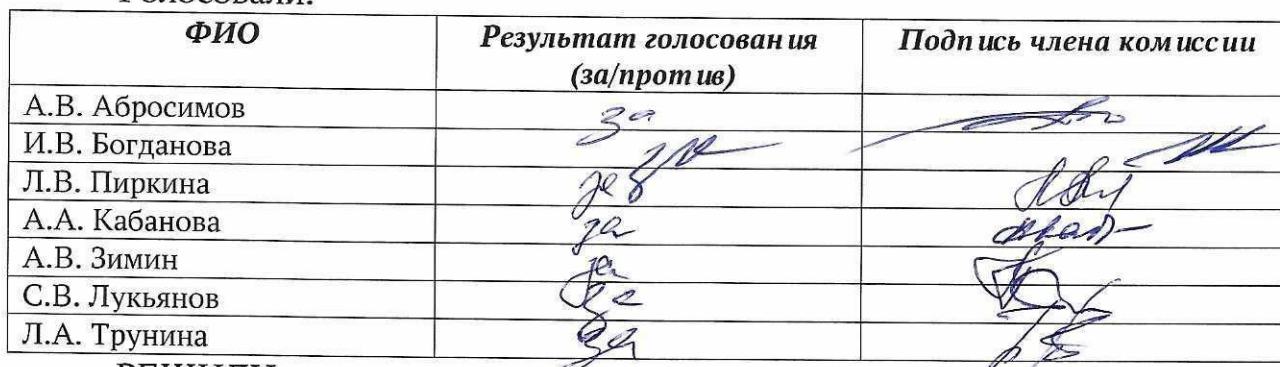 Голосовали:
ФИО Результат голосования Подпись члена комиссии
(за/против)
А.В. Абросимов за
И.В. Богданова за
Л.В. Пиркина за
А.А. Кабанова за
А.В. Зимин за
С.В. Лукьянов за
Л.А. Трунина за
РЕШИЛИ